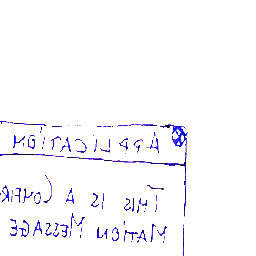 APPLICATION
THIS IS A CONFIR
MATION MESSAGE